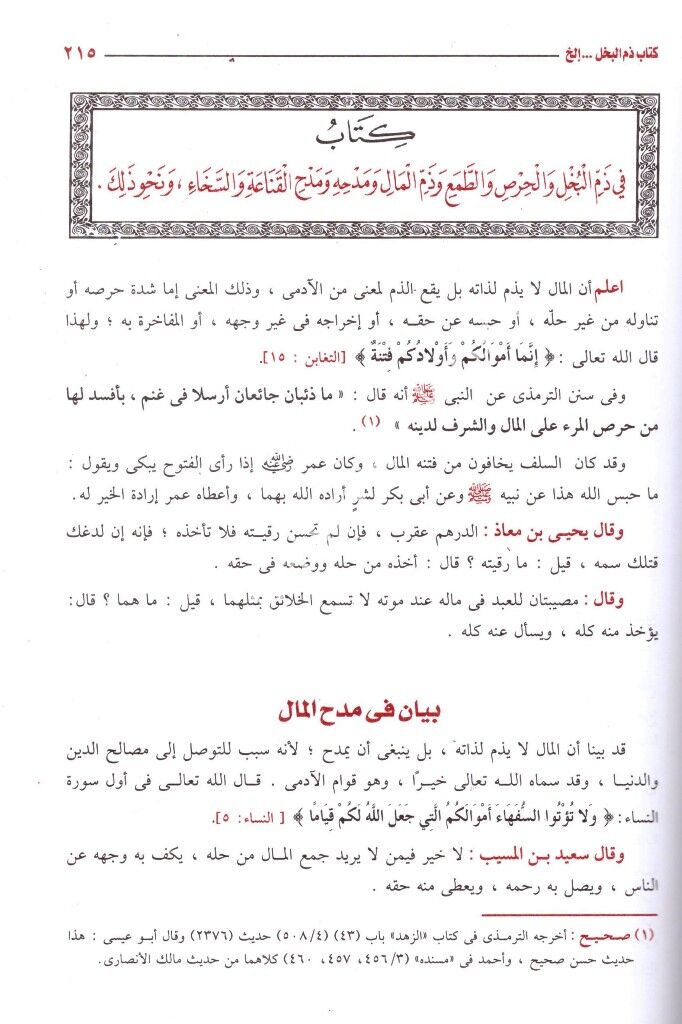 كتاب ذم البخل ... إلخ ٢١٥
كِتَابُ
فِي ذَمِّ الْبُخْلِ وَالْحِرْصِ وَالطَّمَعِ وَذَمِّ الْمَالِ وَمَدْحِهِ وَمَدْحِ الْقَنَاعَةِ وَالسَّخَاءِ ، وَنَحْوِ ذَلِكَ .
اعلم أن المال لا يذم لذاته بل يقع الذم لمعنى من الآدمى ، وذلك المعنى إما شدة حرصه أو
تناوله من غير حلّه ، أو حبسه عن حقـه ، أو إخراجه فى غير وجهه ، أو المفاخرة به ؛ ولهذا
قال الله تعالى : ﴿ إِنَّمَا أَمْوَالُكُمْ وَأَوْلادُكُمْ فِتْنَةٌ ﴾ [التغابن : ١٥].
وفى سنن الترمذى عن النبى ﷺ أنه قال : « ما ذئبان جائعان أرسلا فى غنم ، بأفسد لها
من حرص المرء على المال والشرف لدينه » (١) .
وقد كان السلف يخافون من فتنه المال ، وكان عمر رضي الله عنه إذا رأى الفتوح يبكى ويقول :
ما حبس الله هذا عن نبيه ﷺ وعن أبى بكر لشرٍ أراده الله بهما ، وأعطاه عمر إرادة الخير له.
وقال يحيى بن معاذ : الدرهم عقرب ، فإن لم تحسن رقيـته فلا تأخذه ؛ فإنه إن لدغك
قتلك سمه ، قيل : ما رقيته ؟ قال : أخذه من حله ووضعه فى حقه .
وقال : مصيبتان للعبد فى ماله عند موته لا تسمع الخلائق بمثلهما ، قيل : ما هما ؟ قال:
يؤخذ منه كله ، ويسأل عنه كله .
بيان فى مدح المال
قد بينا أن المال لا يذم لذاته ، بل ينبغى أن يمدح ؛ لأنه سبب للتوصل إلى مصالح الدين
والدنيـا ، وقد سماه اللـه تعالى خيـرًا ، وهو قوام الآدمى . قـال الله تعالـى فى أول سورة
النساء: ﴿ وَلا تُؤْتُوا السُّفَهَاءَ أَمْوَالَكُمُ الَّتِي جَعَلَ اللَّهُ لَكُمْ قِيَامًا ﴾ [ النساء: ٥].
وقال سعيد بـن المسيب : لا خير فيمن لا يريد جمع المـال من حله ، يكف به وجهه عن
الناس ، ويصل به رحمه ، ويعطى منه حقه .
(١) صـحيـح : أخرجه الترمـذى فى كتاب «الزهد» باب (٤٣) (٥٠٨/٤) حديث (٢٣٧٦) وقال أبـو عيسى : هذا
حديث حسن صحيح ، وأحمد فى «مسنده» (٤٥٦/٣، ٤٥٧، ٤٦٠) كلاهما من حديث مالك الأنصارى.